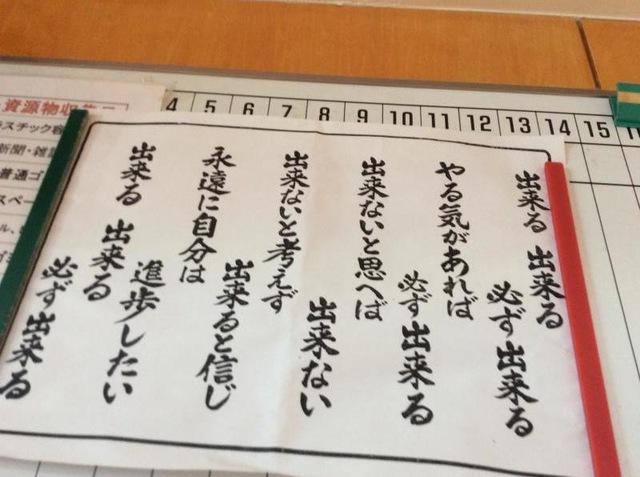 4 5 6 7 8 9 10 11 12 13 14 15
資源物収
スチック容
新聞・雑
普通ゴ
スペー
出来る 出来る
必ず出来る
やる気があれば
必ず出来る
出来ないと思へば
出来ない
出来ないと考えず
出来ると信じ
永遠に自分は
進歩したい
出来る 出来る
必ず出来る